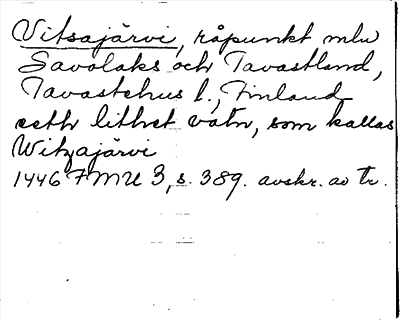 Vitsajärvi, råpunkt mlu
Savolaks och Tavastland,
Tavastehus l., Finland
eeth lithet vatn, som kallas
Witzajärvi
1446 FMU 3, s. 389. avskr. av tr.